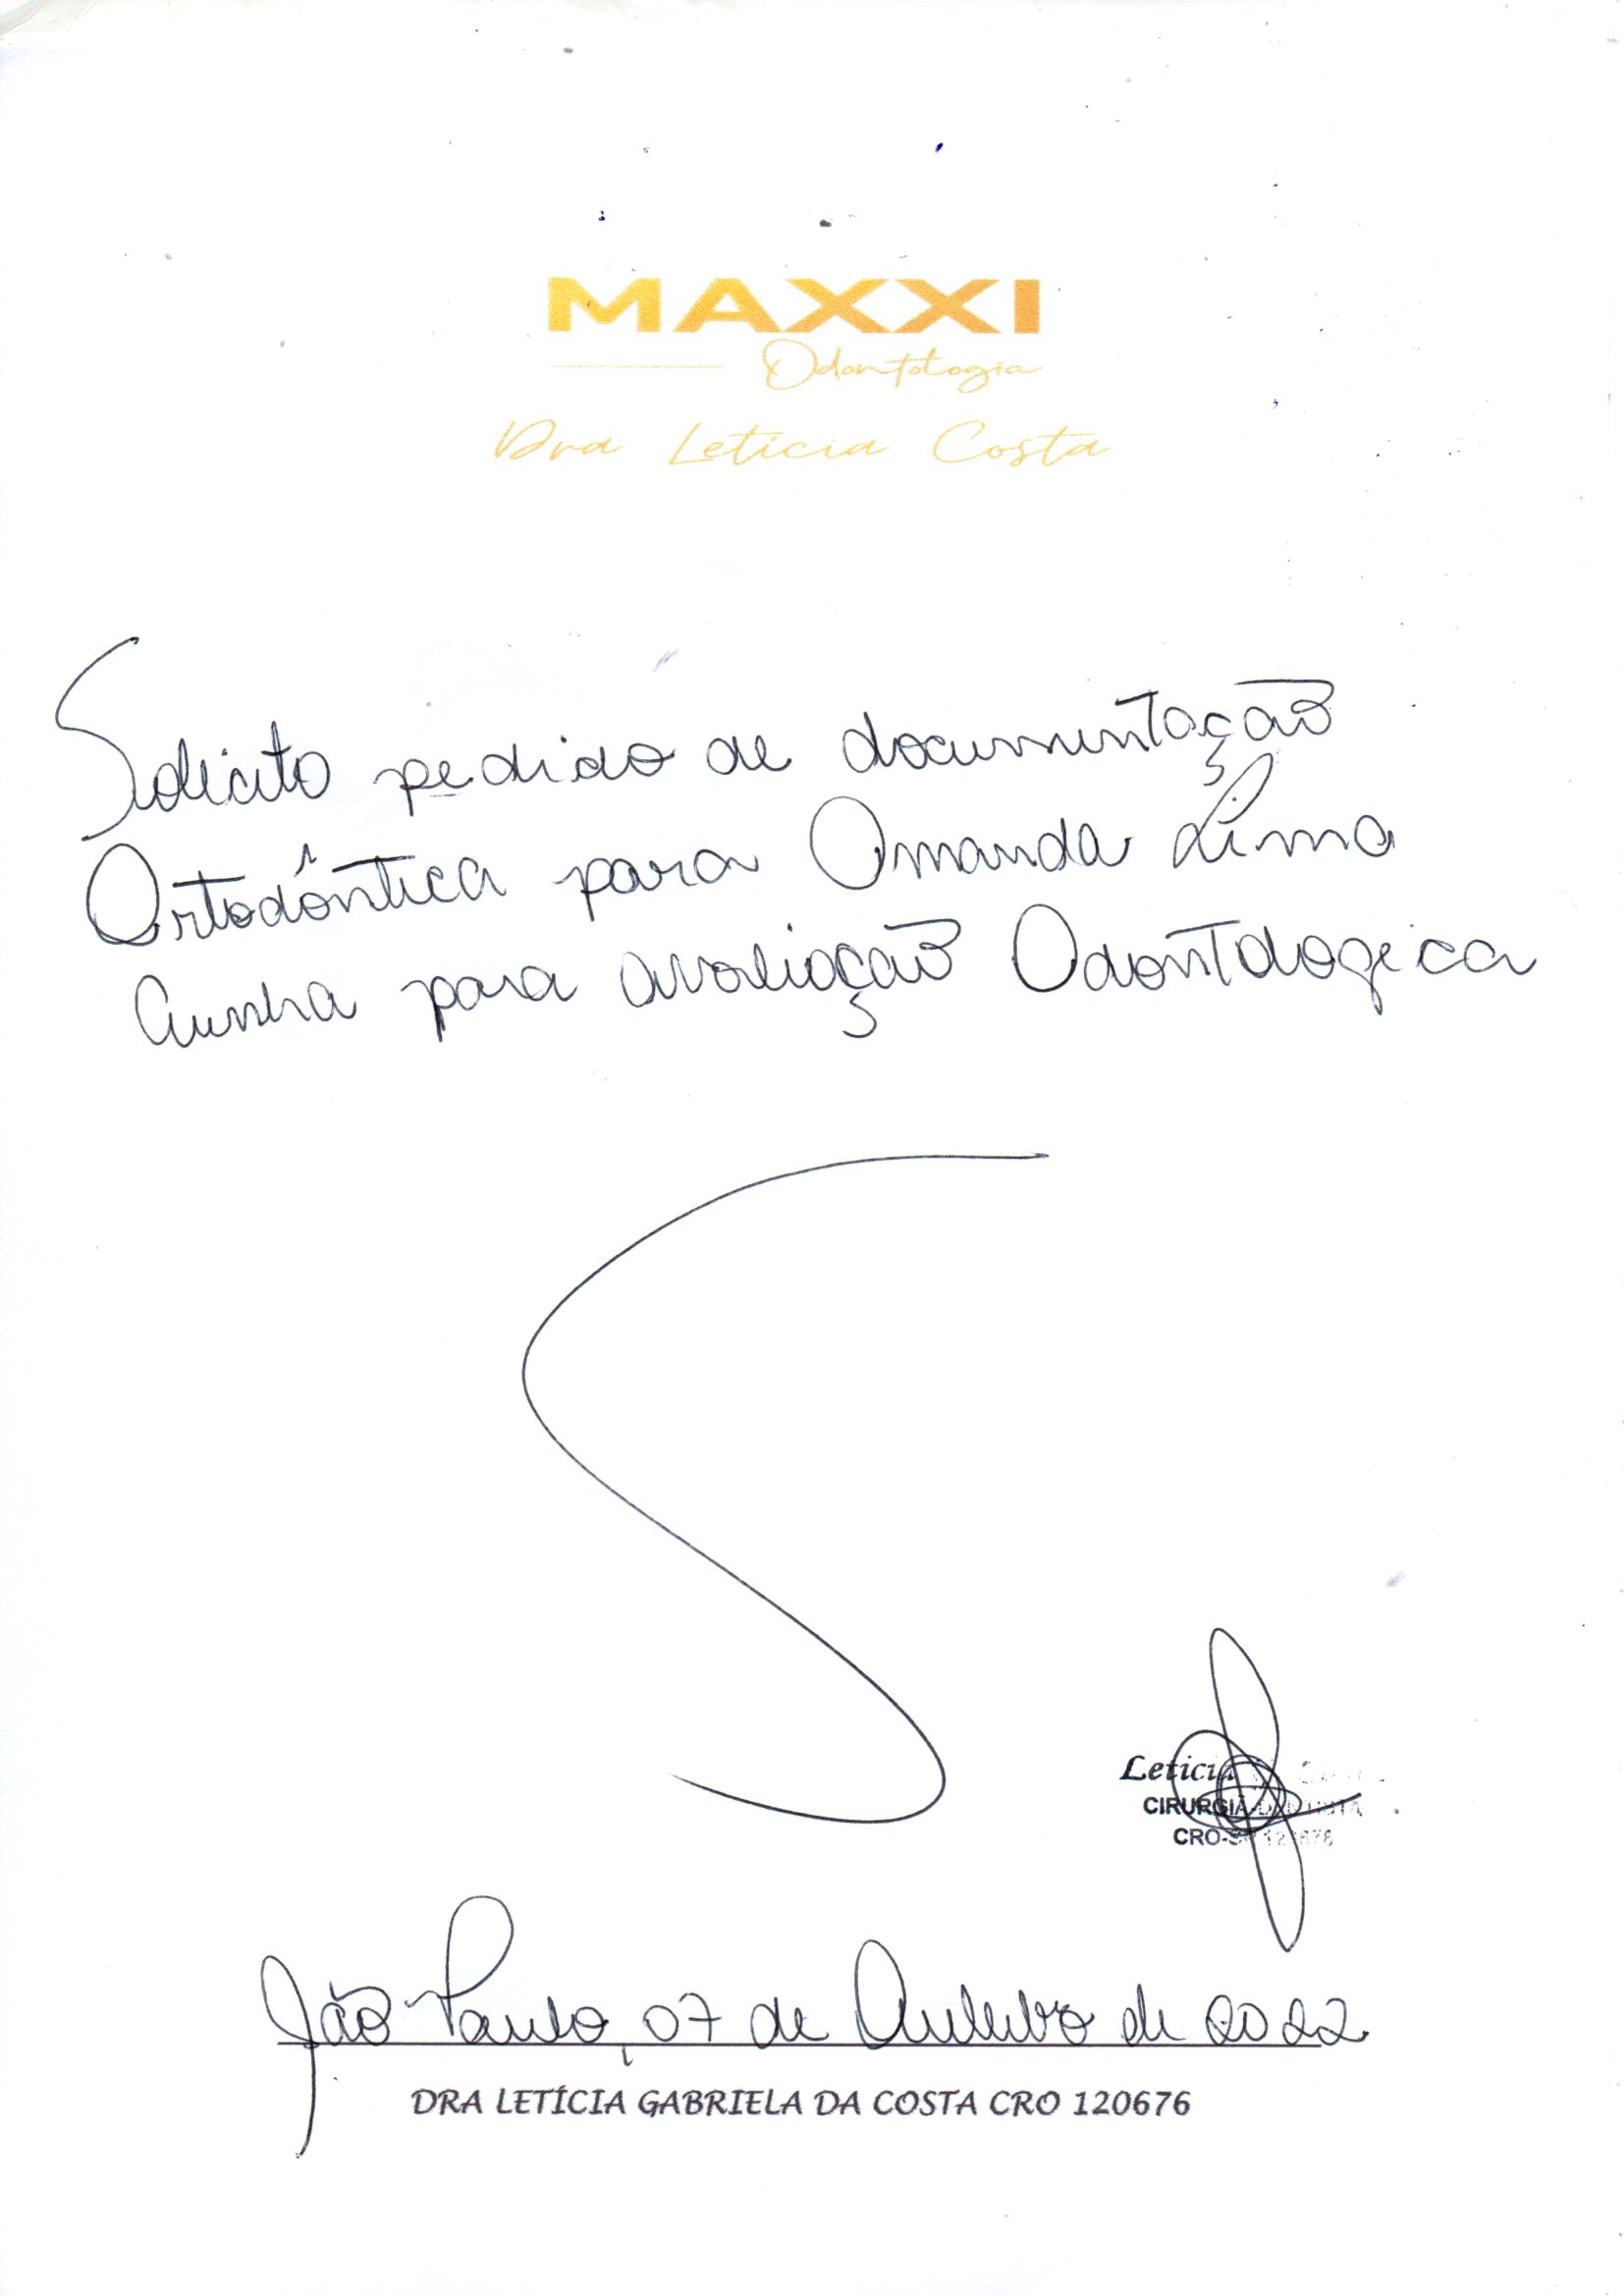 MAXXI
Odontologia
Dra Letícia Costa
Solicito pedido de documentação
Ortodôntica para Amanda Lima
Cunha para avaliação Odontologica
Leticia
CIRURGIÃ-DENTISTA
CRO-SP 120676
São Paulo, 07 de Outubro de 2022
DRA LETÍCIA GABRIELA DA COSTA CRO 120676